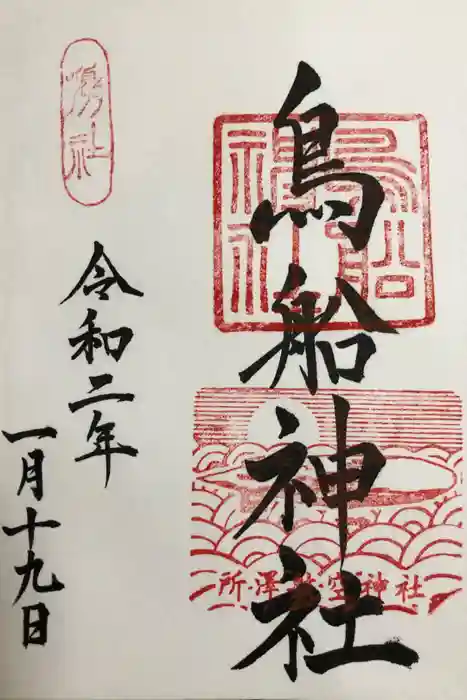 鳥船神社
鳥船神社
所澤航空神社
令和二年
一月十九日